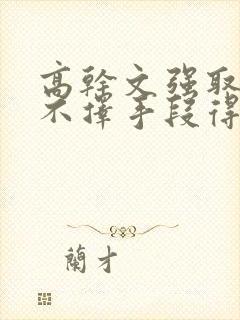 高幹文強取
不擇手段得
蘭才